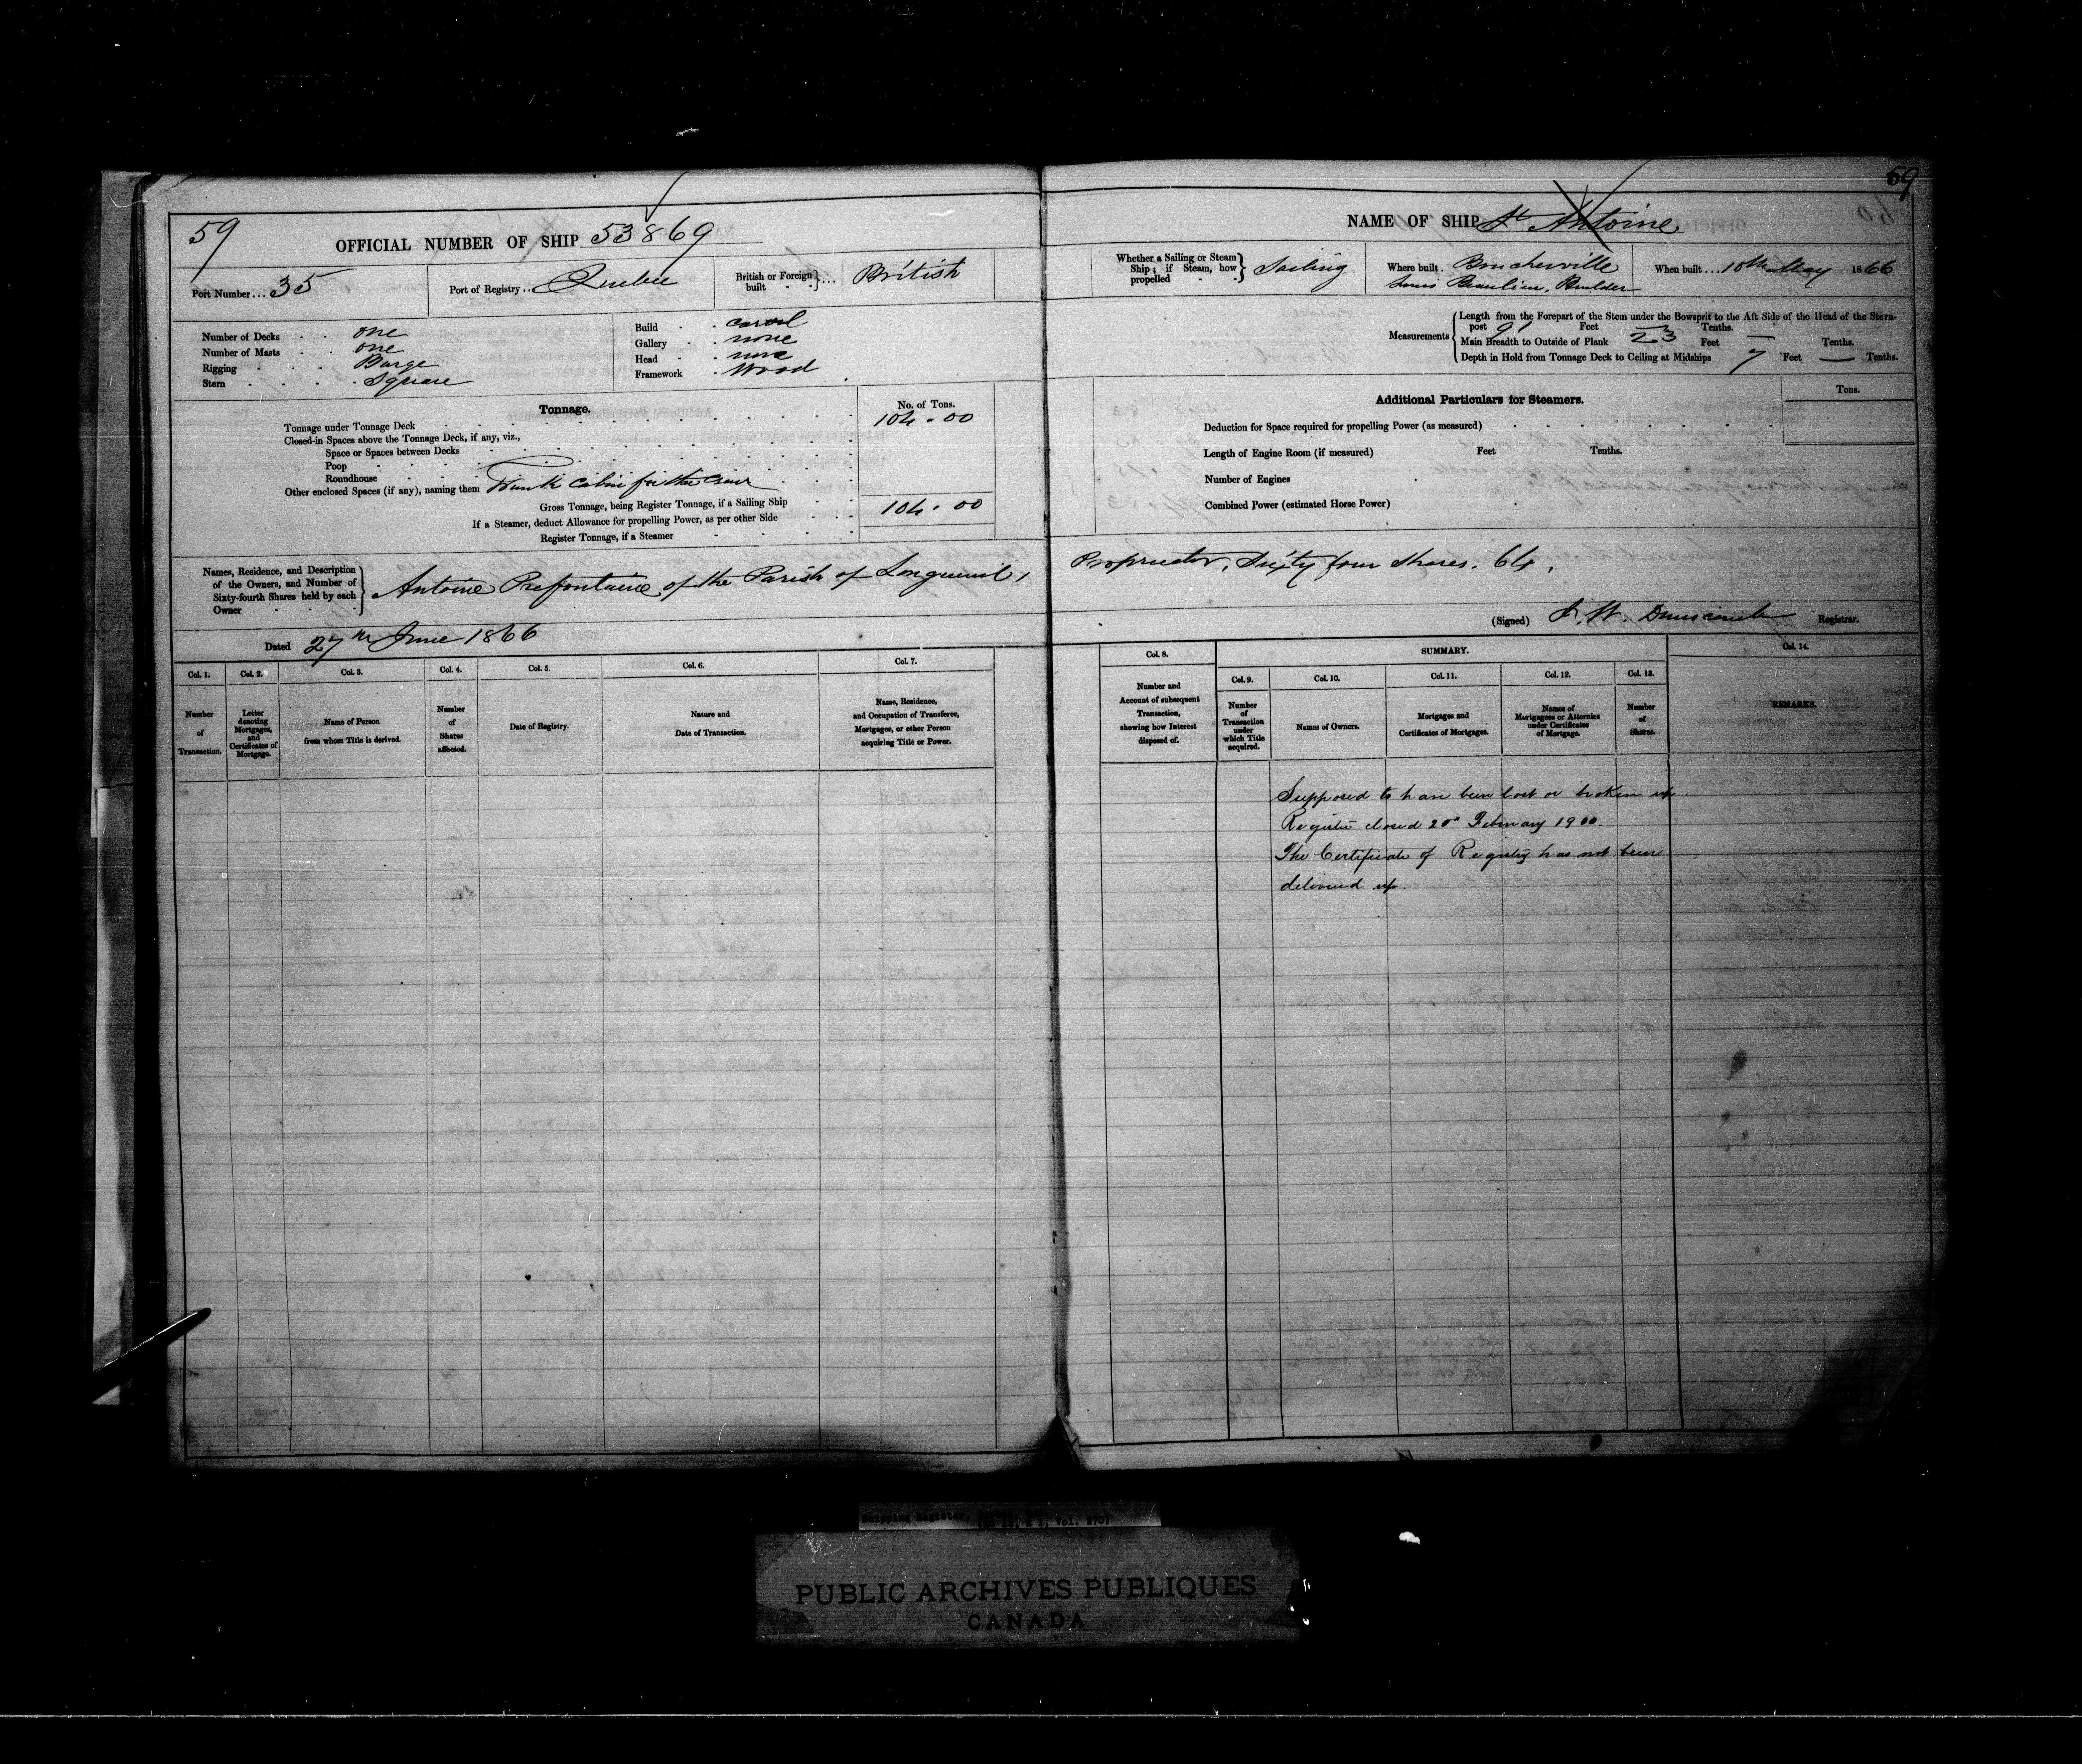 59
59
OFFICIAL NUMBER OF SHIP 53869
NAME OF SHIP St Antoine
Port Number... 35
Port of Registry... Quebec
British or Foreign built } ... British
Whether a Sailing or Steam Ship; if Steam, how propelled } Sailing
Where built. Boucherville
Louis Beaulieu, Builder
When built... 10th May 1866
Number of Decks . . one
Number of Masts . . one
Rigging . . . Barge
Stern . . . . Square
Build . . carvel
Gallery . . none
Head . . none
Framework . Wood
Measurements
Length from the Forepart of the Stem under the Bowsprit to the Aft Side of the Head of the Stern-
post 91 Feet — Tenths.
Main Breadth to Outside of Plank 23 Feet — Tenths.
Depth in Hold from Tonnage Deck to Ceiling at Midships 7 Feet — Tenths.
Tonnage.
No. of Tons.
Tonnage under Tonnage Deck 104.00
Closed-in Spaces above the Tonnage Deck, if any, viz.,
Space or Spaces between Decks
Poop
Roundhouse
Other enclosed Spaces (if any), naming them Trunk Cabin for the Crew
Gross Tonnage, being Register Tonnage, if a Sailing Ship 104.00
If a Steamer, deduct Allowance for propelling Power, as per other Side
Register Tonnage, if a Steamer
Additional Particulars for Steamers.
Tons.
Deduction for Space required for propelling Power (as measured)
Length of Engine Room (if measured) Feet Tenths.
Number of Engines
Combined Power (estimated Horse Power)
Names, Residence, and Description
of the Owners, and Number of
Sixty-fourth Shares held by each
Owner
Antoine Prefontaine, of the Parish of Longueuil, Proprietor, Sixty four Shares. 64.
Dated 27th June 1866
(Signed) J. W. Dunscomb Registrar.
Col. 1.
Number of Transaction.
Col. 2.
Letter denoting Mortgages, and Certificates of Mortgage.
Col. 3.
Name of Person from whom Title is derived.
Col. 4.
Number of Shares affected.
Col. 5.
Date of Registry.
Col. 6.
Nature and Date of Transaction.
Col. 7.
Name, Residence, and Occupation of Transferee, Mortgagee, or other Person acquiring Title or Power.
Col. 8.
Number and Account of subsequent Transaction, showing how Interest disposed of.
SUMMARY.
Col. 9.
Number of Transaction under which Title acquired.
Col. 10.
Names of Owners.
Col. 11.
Mortgages and Certificates of Mortgages.
Col. 12.
Names of Mortgagees or Attornies under Certificates of Mortgage.
Col. 13.
Number of Shares.
Col. 14.
REMARKS.
Supposed to have been lost or broken up.
Register closed 20 February 1900.
The Certificate of Registry has not been
delivered up.
Shipping Register,
Vol. 270)
PUBLIC ARCHIVES PUBLIQUES
CANADA